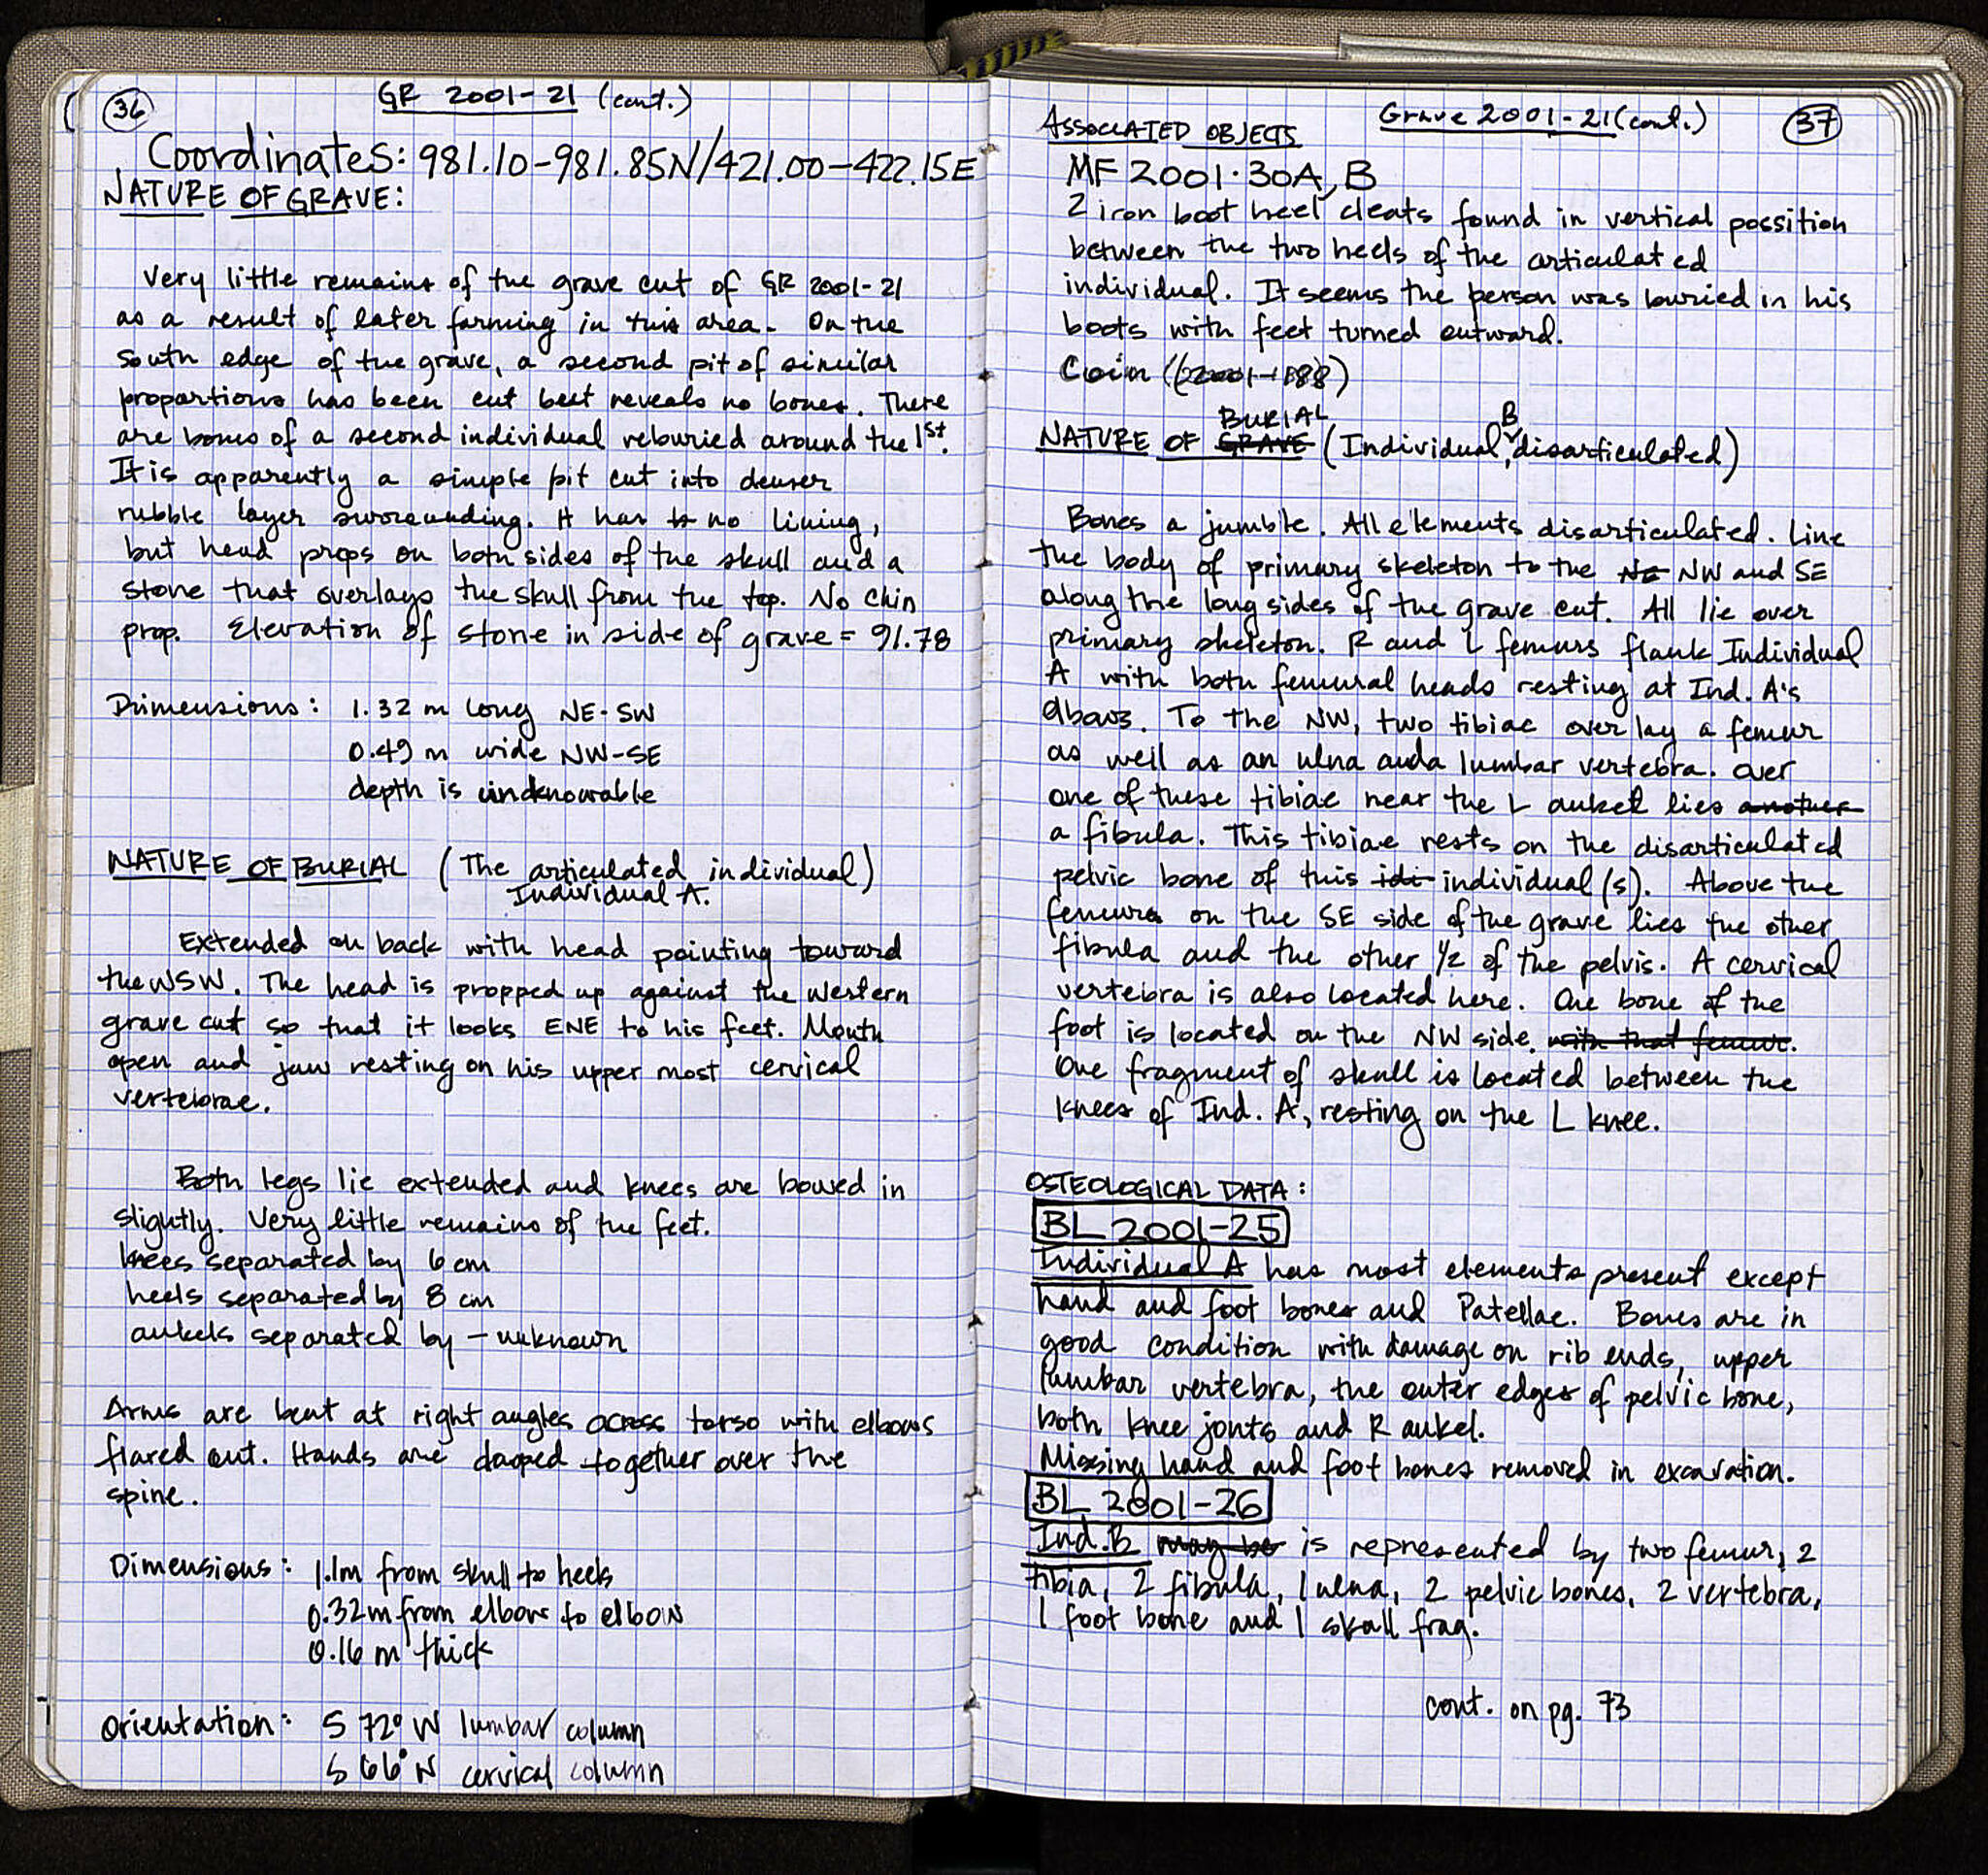 36
GR 2001-21 (cont.)
Coordinates: 981.10-981.85N/421.00-422.15E
NATURE OF GRAVE:
Very little remains of the grave cut of GR 2001-21
as a result of later farming in this area. On the
south edge of the grave, a second pit of similar
proportions has been cut but reveals no bones. There
are bones of a second individual reburied around the 1st.
It is apparently a simple pit cut into denser
rubble layer surrounding. It has no lining,
but head props on both sides of the skull and a
stone that overlays the skull from the top. No chin
prop. Elevation of stone in side of grave = 91.78
Dimensions: 1.32 m long NE-SW
0.49 m wide NW-SE
depth is unknowable
NATURE OF BURIAL (The articulated individual)
Individual A.
Extended on back with head pointing toward
the WSW. The head is propped up against the western
grave cut so that it looks ENE to his feet. Mouth
open and jaw resting on his upper most cervical
vertebrae.
Both legs lie extended and knees are bowed in
slightly. Very little remains of the feet.
knees separated by 6 cm
heels separated by 8 cm
ankels separated by - unknown
Arms are bent at right angles across torso with elbows
flared out. Hands are clasped together over the
spine.
Dimensions: 1.1m from skull to heels
0.32m from elbow to elbow
0.16 m thick
Orientation: S 72° W lumbar column
S 66° W cervical column
Grave 2001-21 (cont.)
37
ASSOCIATED OBJECTS
MF 2001·30A, B
2 iron boot heel cleats found in vertical possition
between the two heels of the articulated
individual. It seems the person was buried in his
boots with feet turned outward.
Coin (2001-188)
BURIAL B
NATURE OF GRAVE (Individual, disarticulated)
Bones a jumble. All elements disarticulated. Line
the body of primary skeleton to the NE NW and SE
along the long sides of the grave cut. All lie over
primary skeleton. R and L femurs flank Individual
A with both femural heads resting at Ind. A's
elbows. To the NW, two tibiae overlay a femur
as well as an ulna and a lumbar vertebra. Over
one of these tibiae near the L ankel lies another
a fibula. This tibiae rests on the disarticulated
pelvic bone of this idi individual(s). Above the
femurs on the SE side of the grave lies the other
fibula and the other 1/2 of the pelvis. A cervical
vertebra is also located here. One bone of the
foot is located on the NW side. with that femur.
One fragment of skull is located between the
knees of Ind. A, resting on the L knee.
OSTEOLOGICAL DATA:
BL 2001-25
Individual A has most elements present except
hand and foot bones and Patellae. Bones are in
good condition with damage on rib ends, upper
lumbar vertebra, the outer edges of pelvic bone,
both knee jonts and R ankel.
Missing hand and foot bones removed in excavation.
BL 2001-26
Ind. B may be is represented by two femur, 2
tibia, 2 fibula, 1 ulna, 2 pelvic bones, 2 vertebra,
1 foot bone and 1 skull frag.
cont. on pg. 73